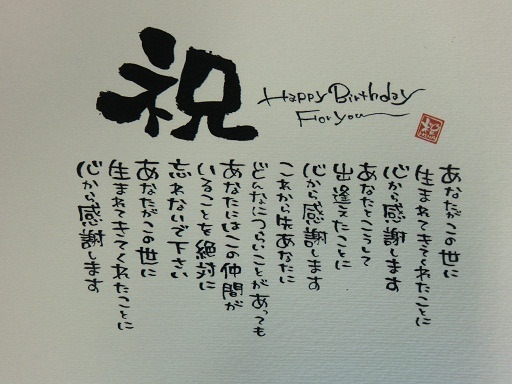 祝
Happy Birthday
For you
あなたがこの世に
生まれてきてくれたことに
心から感謝します
あなたとこうして
出逢えたことに
心から感謝します
これから先あなたに
どんなにつらいことがあっても
あなたにはこの仲間が
いることを絶対に
忘れないで下さい
あなたがこの世に
生まれてきてくれたことに
心から感謝します